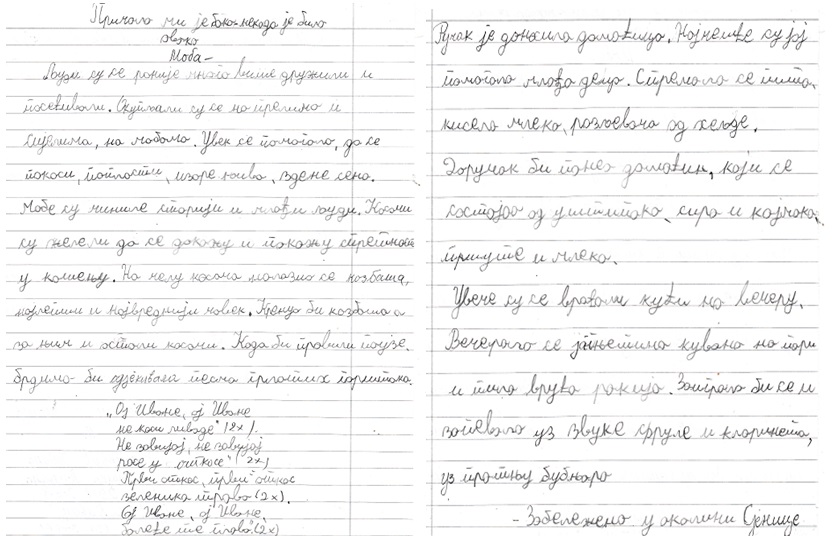 Причала ми је бака- некада је било
овако
Моба-
Људи су се раније много више дружили и
посећивали. Окупљали су се на прелима и
сијелима, на мобама. Увек се помагало, да се
покоси, попласти, изоре њива, здене сено.
Мобе су чиниле старији и млађи људи. Косачи
су желели да се докажу и покажу спретност
у кошењу. На челу косача налазио се козбаша,
најлепши и највреднији човек. Кренуо би козбаша а
за њим и остали косачи. Када би правили паузе.
брдима би одјекивала песма грлатих
„Ој Иване, ој Иване
не коси ливаде" (2x).
Не завијај, не завијај
росе у откосе" (2x)
Први откос, први откос
зеленика трава (2x).
Ој Иване, ој Иване,
(2x)
Ручак је доносила домаћица. Најчешће су јој
помагала млађа деца. Спремала се пита,
кисело млеко, разљевача од хељде.
Доручак би понео домаћин, који се
састојао од уштипака, сира и кајмака,
пршуте и млека.
Увече су се враћали кући на вечеру.
Вечерало се јагњетина кувана на пари
и пила врућа ракија. Заиграло би се и
запевало уз звуке фруле и кларинета,
уз пратњу бубњара
- Забележено у околини Сјенице